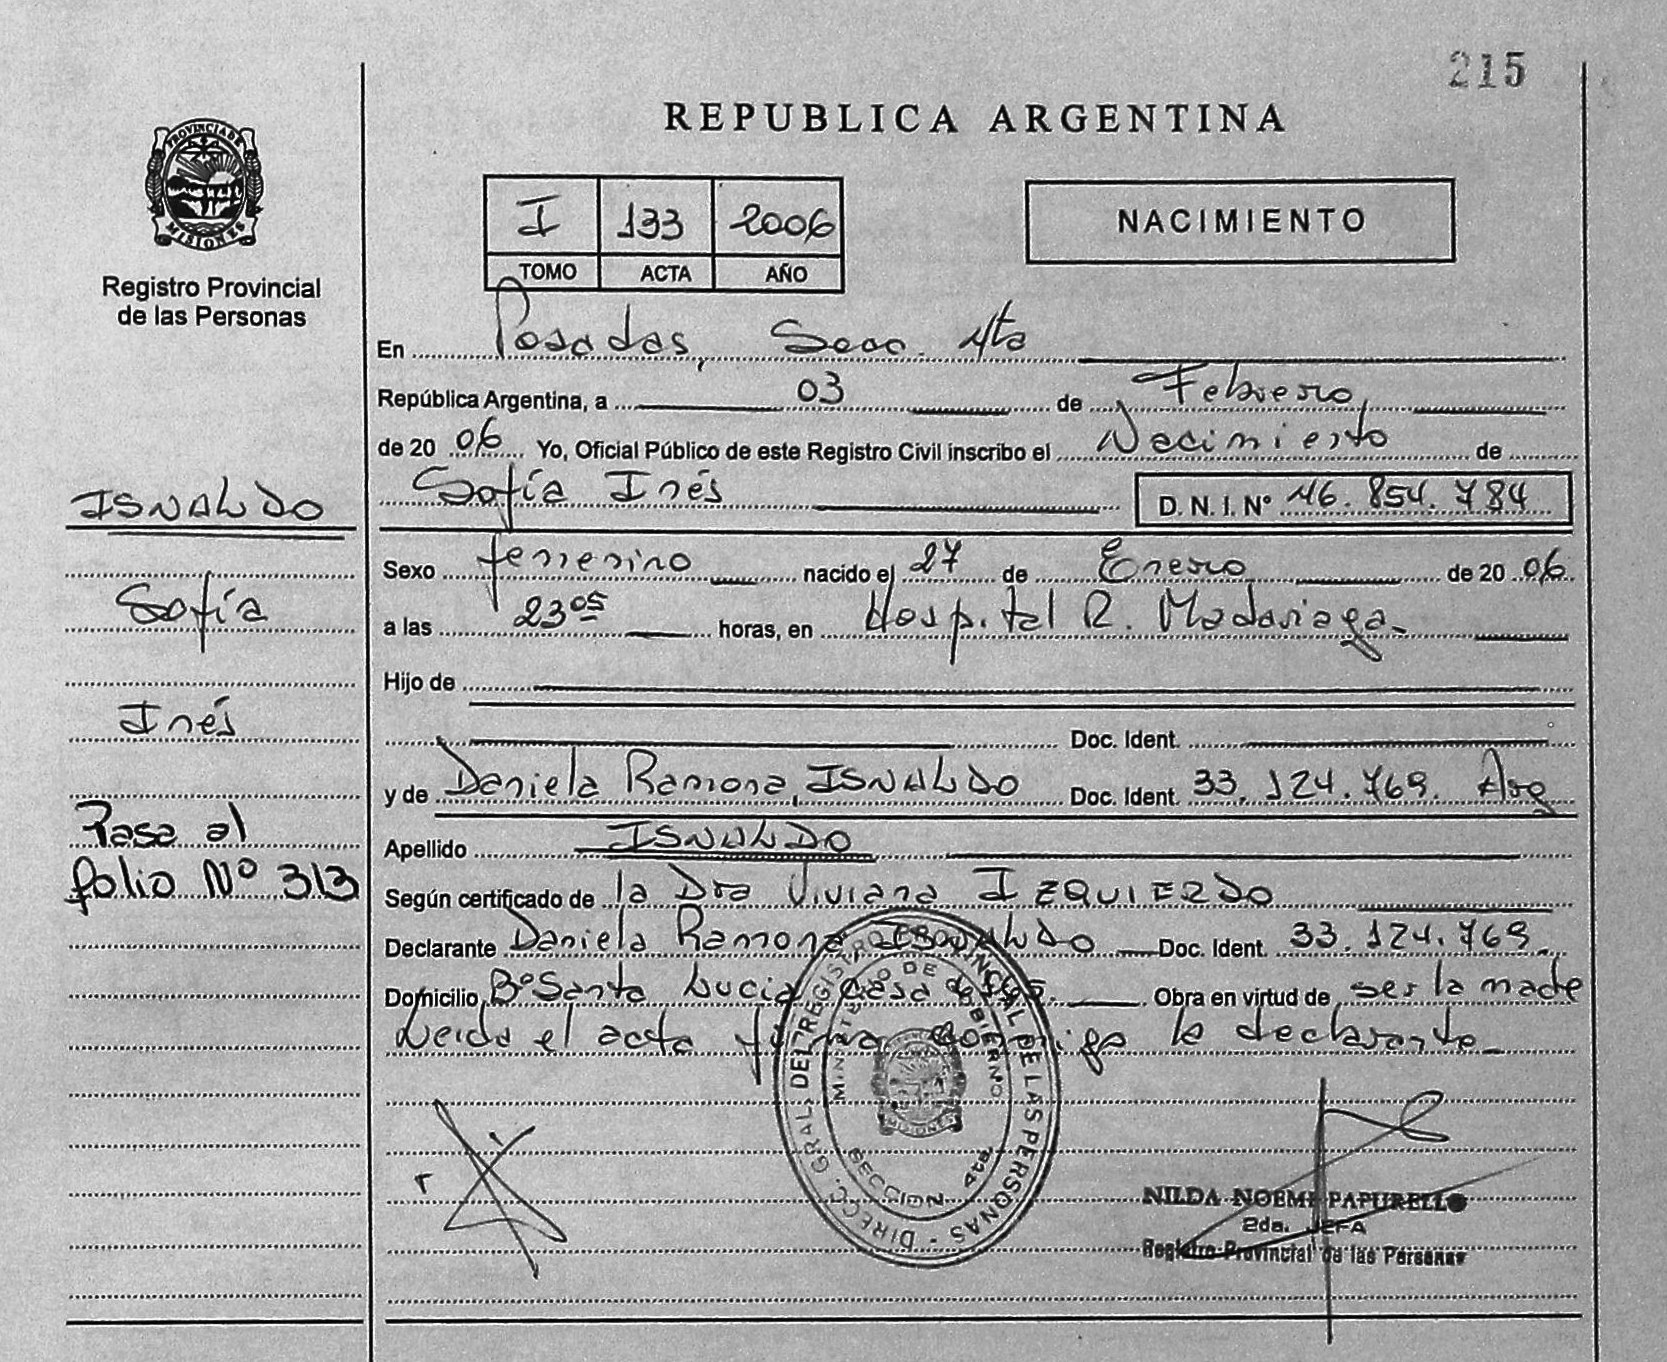 215
REPUBLICA ARGENTINA
PROVINCIA DE
MISIONES
Registro Provincial
de las Personas
I 133 2006
TOMO ACTA AÑO
NACIMIENTO
En Posadas, Secc. 4ta
República Argentina, a 03 de Febrero
de 20 06 Yo, Oficial Público de este Registro Civil inscribo el Nacimiento de
Sofía Inés D. N. I. Nº 46.854.784
Sexo femenino nacido el 27 de Enero de 20 06
a las 23 05 horas, en Hospital R. Madariaga
Hijo de
Doc. Ident.
y de Daniela Ramona, ISNALDO Doc. Ident. 33.124.769. Arg
Apellido ISNALDO
Según certificado de la Dra Viviana IZQUIERDO
Declarante Daniela Ramona, ISNALDO Doc. Ident. 33.124.769.
Domicilio Bº Santa Lucia Casa Obra en virtud de ser la madre
Leida el acta firma conmigo la declarante
ISNALDO
Sofía
Inés
Pasa al
folio Nº 313
DIRECC. GRAL. DEL REGISTRO PROVINCIAL DE LAS PERSONAS
MINISTERIO DE GOBIERNO
MISIONES
SECCION 4ta.
NILDA NOEMI PAPURELLO
2da. JEFA
Registro Provincial de las Personas